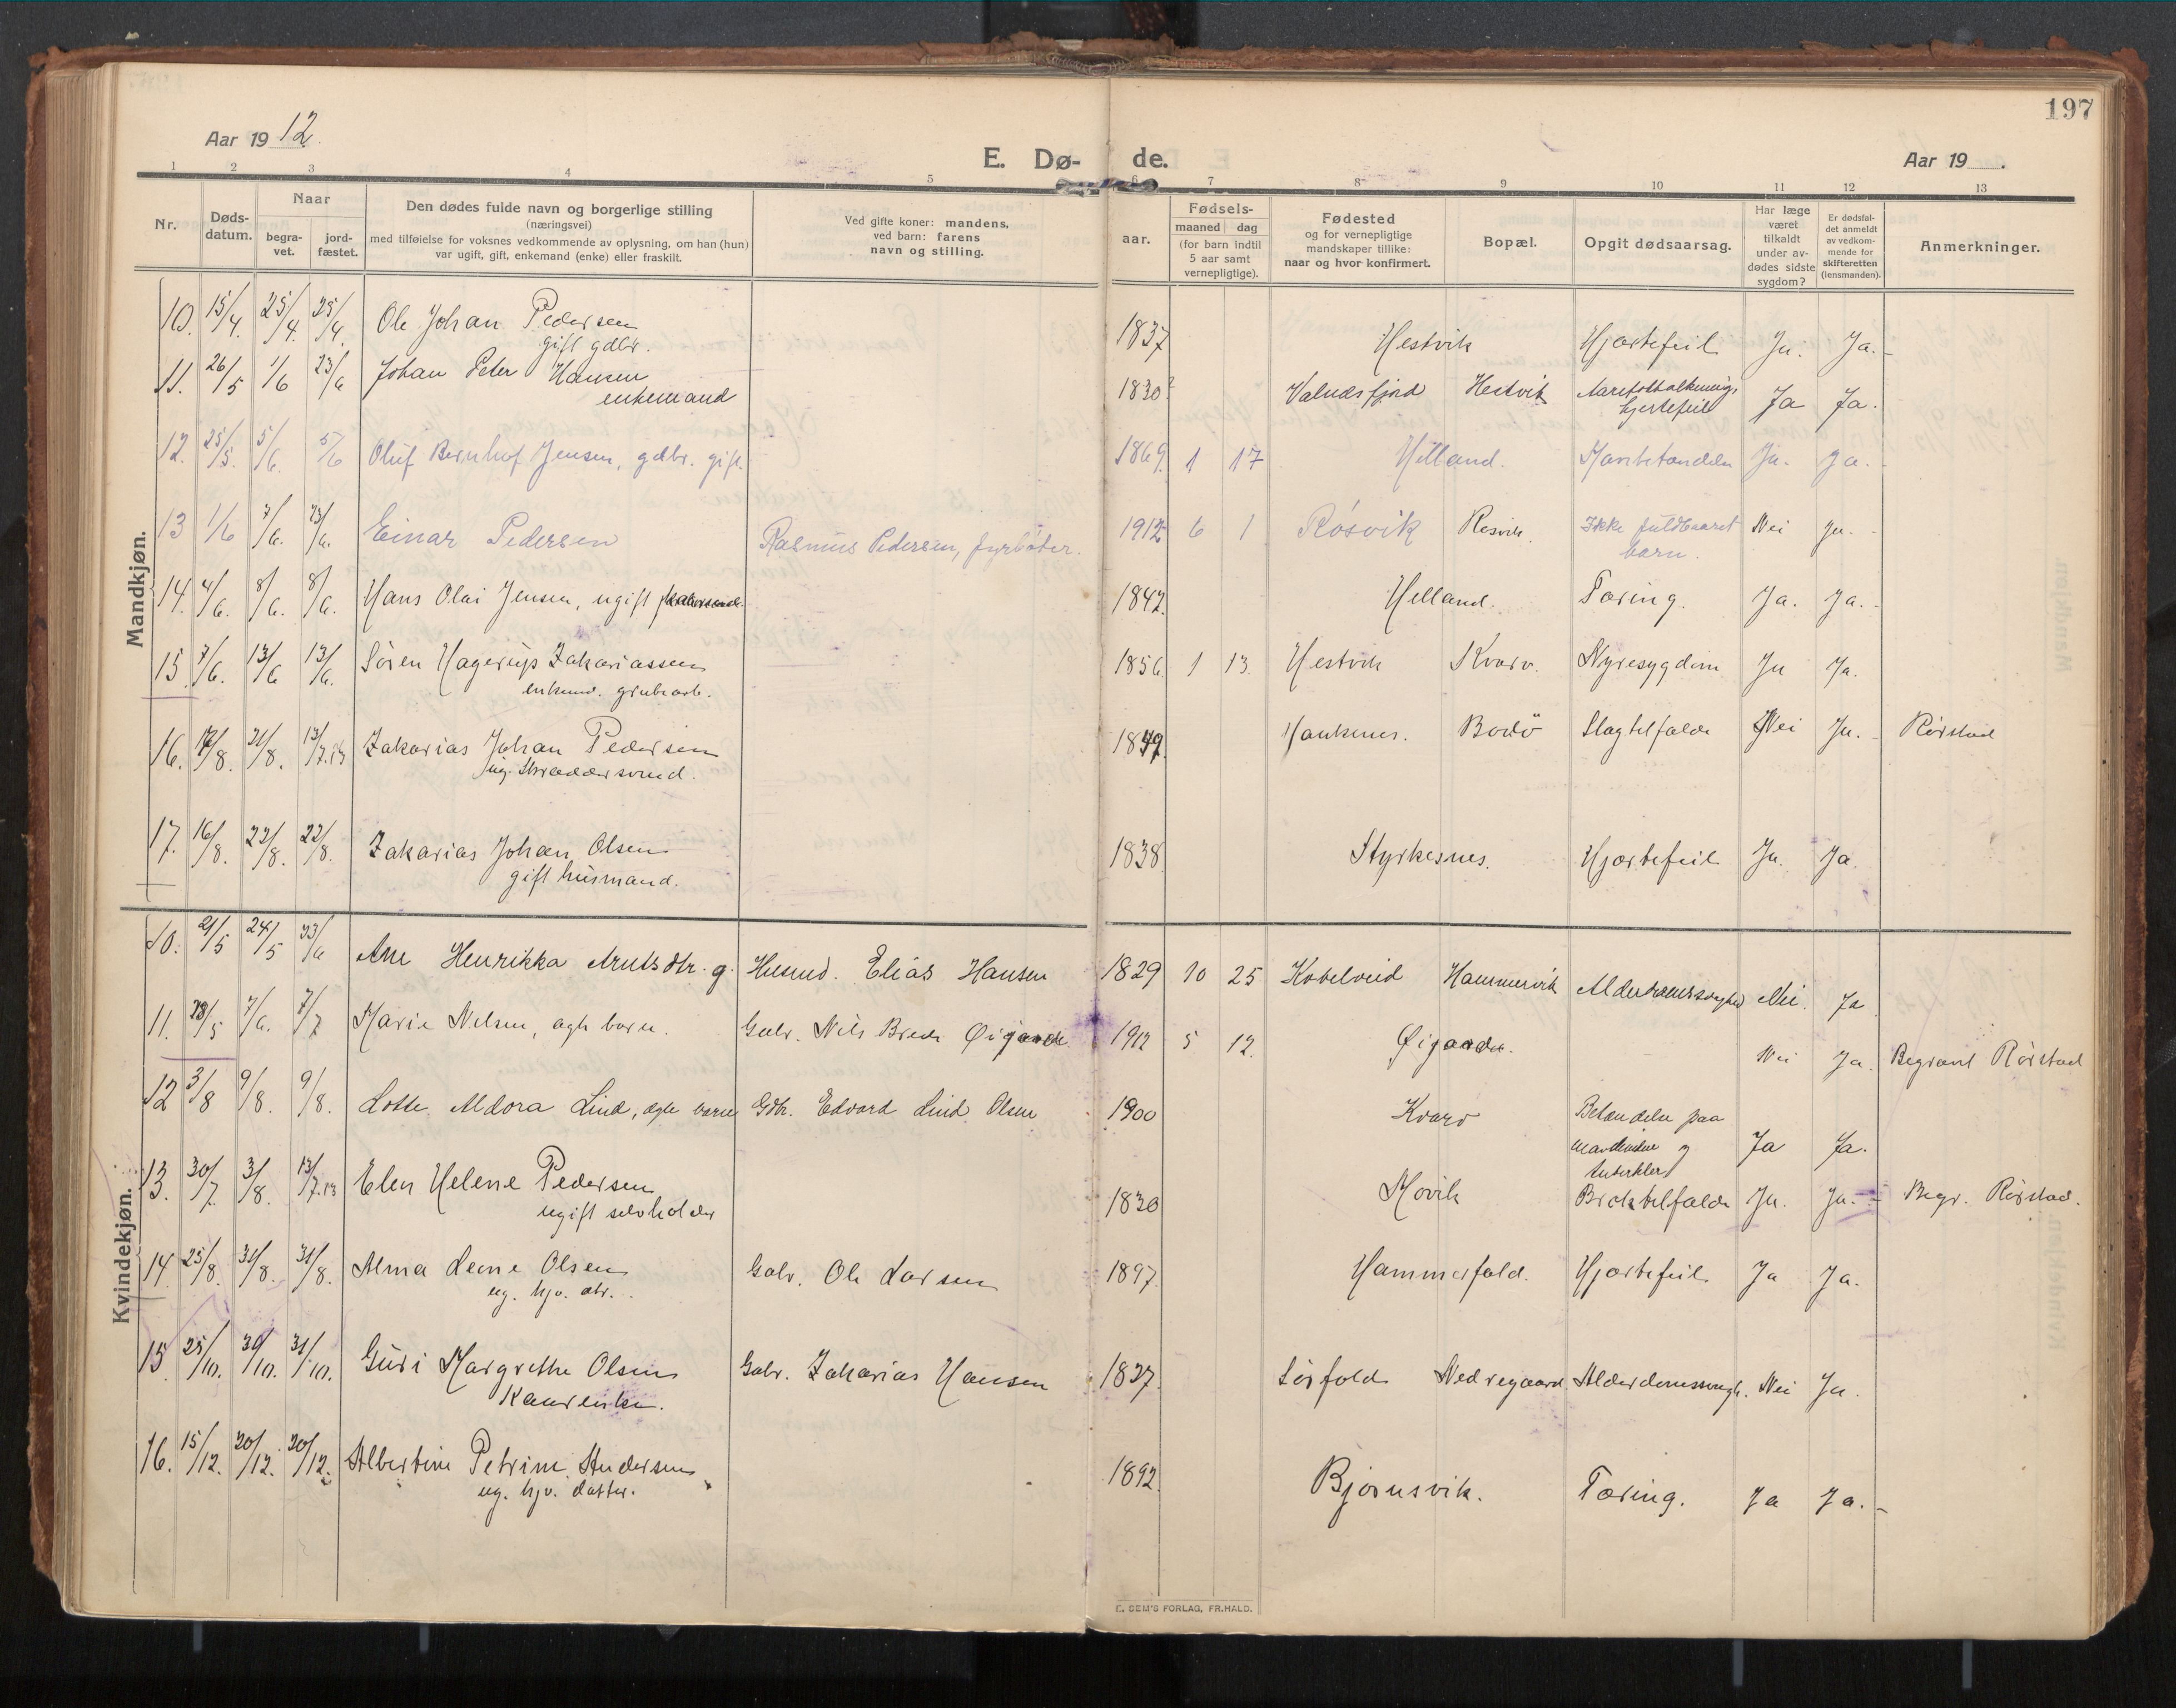 197
Aar 1912.
E. Dø-de.
Aar 19 .
1 2 3 4 5 6 7 8 9 10 11 12 13
Nr.
Døds-
datum.
Naar
begra-
vet.
jord-
fæstet.
Den dødes fulde navn og borgerlige stilling
(næringsvei)
med tilføielse for voksnes vedkommende av oplysning, om han (hun)
var ugift, gift, enkemand (enke) eller fraskilt.
Ved gifte koner: mandens,
ved barn: farens
navn og stilling.
aar.
Fødsels-
maaned dag
(for barn indtil
5 aar samt
vernepligtige).
Fødested
og for vernepligtige
mandskaper tillike:
naar og hvor konfirmert.
Bopæl.
Opgit dødsaarsag.
Har læge
været
tilkaldt
under av-
dødes sidste
sygdom?
Er dødsfal-
det anmeldt
av vedkom-
mende for
skifteretten
(lensmanden).
Anmerkninger.
Mandkjøn.
10. 15/4. 25/4. 25/4. Ole Johan Pedersen 1837 Hestvik Hjertefeil Ja. Ja.
gift gdbr.
11. 26/5 1/6 23/6 Johan Peter Hansen 1830? Valnesfjord Hestvik Aareforkalkning Ja Ja.
enkemand hjertefeil
12. 25/5. 5/6. 5/6 Oluf Bernhof Jensen, gdbr. gift. 1869. 1 17 Helland. Ja. Ja.
13 1/6 7/6. 23/6. Einar Pedersen Rasmus Pedersen, fyrbøter. 1912 6 1 Røsvik Røsvik. Ikke fuldbaaret Nei Ja.
barn.
14. 4/6. 8/6. 8/6. Hans Olai Jensen, ugift 1842. Helland. Tæring. Ja. Ja.
15 7/6. 13/6 13/6. Søren Hagerup Zakariassen 1856 1 13. Hestvik Kvarv. Nyresygdom Ja Ja.
enkem. grubearb.
16. 17/8. 21/8. 13/7.13 Zakarias Johan Pedersen 1849. Bodö Slagtilfælde Nei Ja. Rørstad
ug. skræddersvend.
17. 16/8. 22/8. 22/8. Zakarias Johan Olsen 1838 Styrkesnes. Hjertefeil Ja. Ja.
gift husmand.
Kvindekjøn.
10. 21/5 24/5 23/6 Ane Henrikka Arntsdtr. g. Husmd. Elias Hansen 1829 10 25 Kobelveid Hammervik Alderdomssvaghed Nei. Ja
11. 28/5 7/6. 7/7 Marie Nelsen, ægte barn. Gabr. Nils Brede Øigarde. 1912 5 12. Øigarde. Nei Ja. Begravet Rørstad
12 3/8 9/8. 9/8. Lotte Aldora Lind, ægte barn Gdbr. Edvard Lind Olsen 1900 Kvarv Betændelse paa
og Ja Ja.
tuberkler
13. 30/7. 3/8. 13/7.13 Elen Helene Pedersen 1830 Movik Ja. Ja. Begr. Rørstad.
ugift selvholder
14. 25/8. 31/8. 31/8. Alma Leene Olsen Gabr. Ole Larsen 1897. Hammerfald. Hjertefeil Ja Ja.
ug. hjv. dtr.
15 25/10. 30/10. 31/10. Guri Margrethe Olsen Gabr. Zakarias Hansen 1827. Sørfold Nedregaard. Alderdomssvagh. Nei Ja.
Kaarenke.
16. 15/12. 20/12. 20/12. Albertine Petrine Andersen 1892. Bjørnsvik. Tæring. Ja Ja.
ug. hjv. datter.
E. SEM'S FORLAG, FR.HALD.